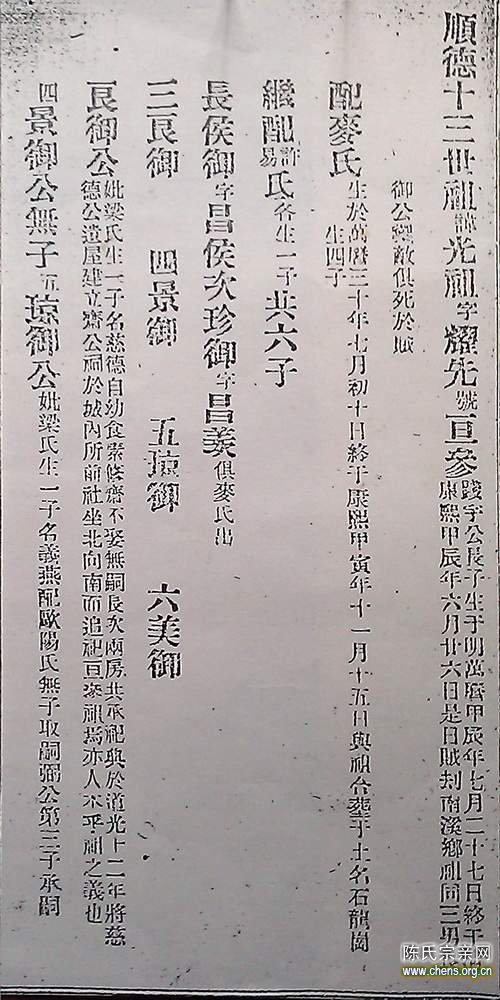 順德十三世祖諱光祖字耀先號亘參踐宇公長子生于明萬曆甲辰年七月二十七日終于
康熙甲辰年六月廿六日是日賊刦南溪鄉祖同三男
御公禦敵俱死於賊
配麥氏生於萬曆三十年七月初十日終于康熙甲寅年十一月十五日與祖合葬于土名石龍崗
生四子
繼配許易氏各生一子共六子
長侯御字昌侯次珍御字昌義俱麥氏出
三艮御 四景御 五琼御 六美御
艮御公妣梁氏生一子名慈德自幼食素修齋不娶無嗣長次兩房共承祀典於道光十二年將慈
德公遺屋建立齋公祠於城內所前社坐北向南而追祀亘參祖焉亦人不乎祖之義也
四景御公無子五琼御公妣梁氏生一子名義燕配歐陽氏無子取嗣弼公第三子承嗣
陈氏宗亲网
www.chens.org.cn